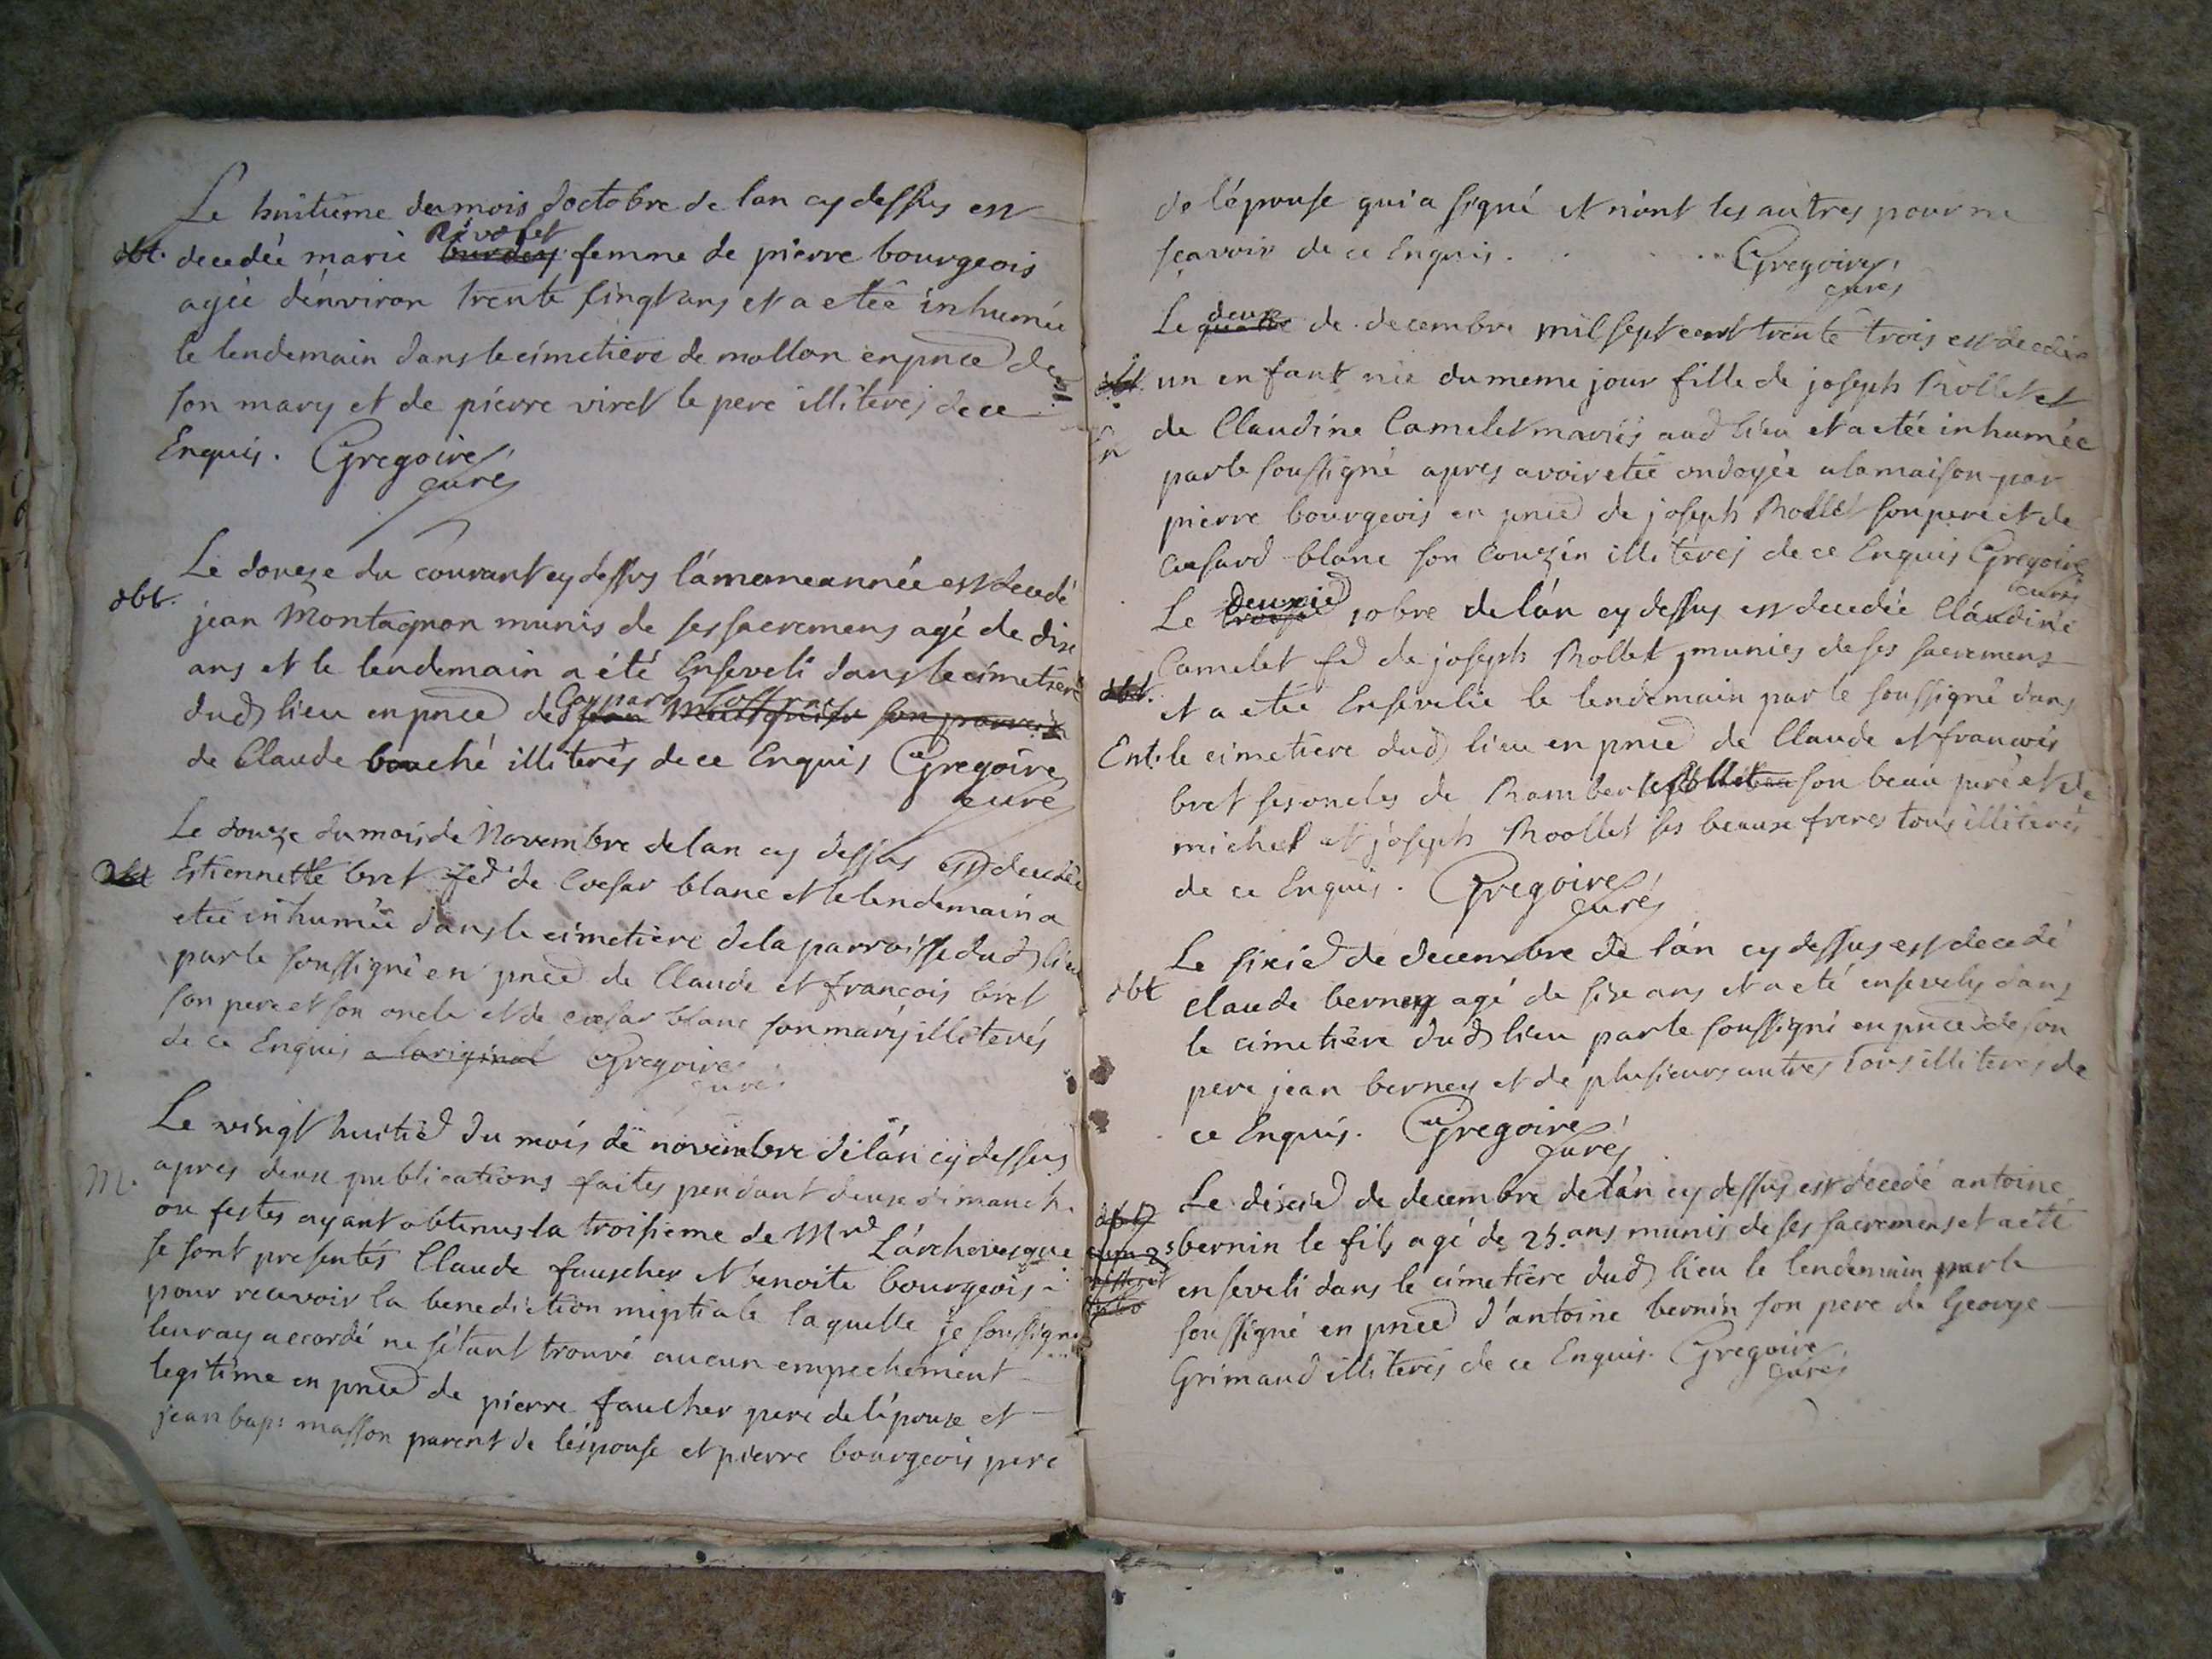 Le huitieme du mois doctobre de lan cy dessus est
Rivolet
obt. decedée marie burdey femme de pierre bourgeois
agée dénviron trente sinqt ans et a etée inhumée
le lendemain dans le cimetiere de mollon en pnce de
son mary et de pierre viret le pere illiterés de ce
Enquis. Gregoire
curé
Le douze du courant cy dessus lámeme année est decedé
obt.
jean Montagnon munis de ses sacremens agé de dix
ans et le lendemain a été Enseveli dans le cimetiere
dud lieu en pnce de Gaspard
de Claude bouché illiterés de ce Enquis Gregoire
curé
Le douze du mois de Novembre de lan cy dessus est decedée
obt Estiennette bret fe de Coesar blanc et le lendemain a
etée inhumée dans le cimetiere de la parroisse dud lieu
par le soussigné en pnce de Claude et françois bret
son pere et son oncle et de coesar blanc son mary illiterés
de ce Enquis a loriginal Gregoire
curé
Le vingt huitie du mois de novembre de lán cy dessus
M. apres deux publications faites pendant deux dimanch.
ou festes ayant obtenus la troisieme de Mr Lárchevesque
se sont presentés Claude fauscher et benoite bourgeois
pour recevoir la benediction niptiale laquelle je soussigné
leur ay accordé ne sétant trouvé aucun empechement
legitime en pnce de pierre faucher pere de lépoux et
jean bap: masson parent de léspouse et pierre bourgeois pere
de lépouse qui a signé et niont les autres pour ne
sçavoir de ce Enquis. Gregoire
curé
deux
Le quatre de decembre mil sept cent trente trois est decedée
obt. un enfant née du meme jour fille de joseph Rollet et
de Claudine Camelet mariés aud lieu et a etée inhumée
par le soussigné apres avoir etée ondoyée a la maison par
pierre bourgeois en pnce de joseph Rollet son pere et de
Coesard blanc son couzin illiterés de ce Enquis Gregoire
curé
deuxie
Le 10bre de lán cy dessus est decedée Cláudine
Camelet fe de joseph Rollet munies de ses sacremens
obt. et a etée Ensevelie le lendemain par le soussigné dans
Ent. le cimetiere dud lieu en pnce de Claude et francois
bret ses oncles de Rambert Rollet son beau pere et de
michel et joseph Roollet ses beaux freres tous illiterés
de ce Enquis. Gregoire
curé
Le sixie de decembre de lán cy dessus est decedé
obt claude berney agé de six ans et a eté ensevely dans
le cimetiere dud lieu par le soussigné en pnce de son
pere jean berney et de plusieurs autres tous illiteres de
ce Enquis. Gregoire
curé
Le dixie de decembre de lán cy dessus est decedé antoine
bernin le fils agé de 25. ans munis de ses sacremens et a été
enseveli dans le cimetiere dud lieu le lendemain par le
soussigné en pnce d'antoine bernin son pere de George
Grimaud illiterés de ce Enquis. Gregoire
curé